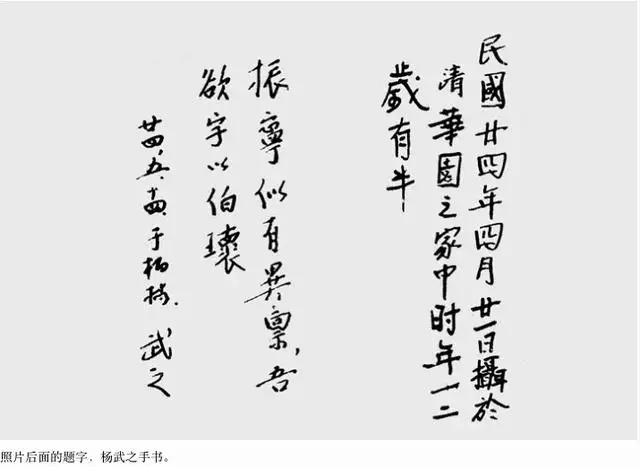 民國廿四年四月廿一日攝於
清華園之家中时年十二
歲有半
振寧似有異禀，吾
欲字以伯瓌
廿四、五、十四、于柏林. 武之
照片后面的题字，杨武之手书。